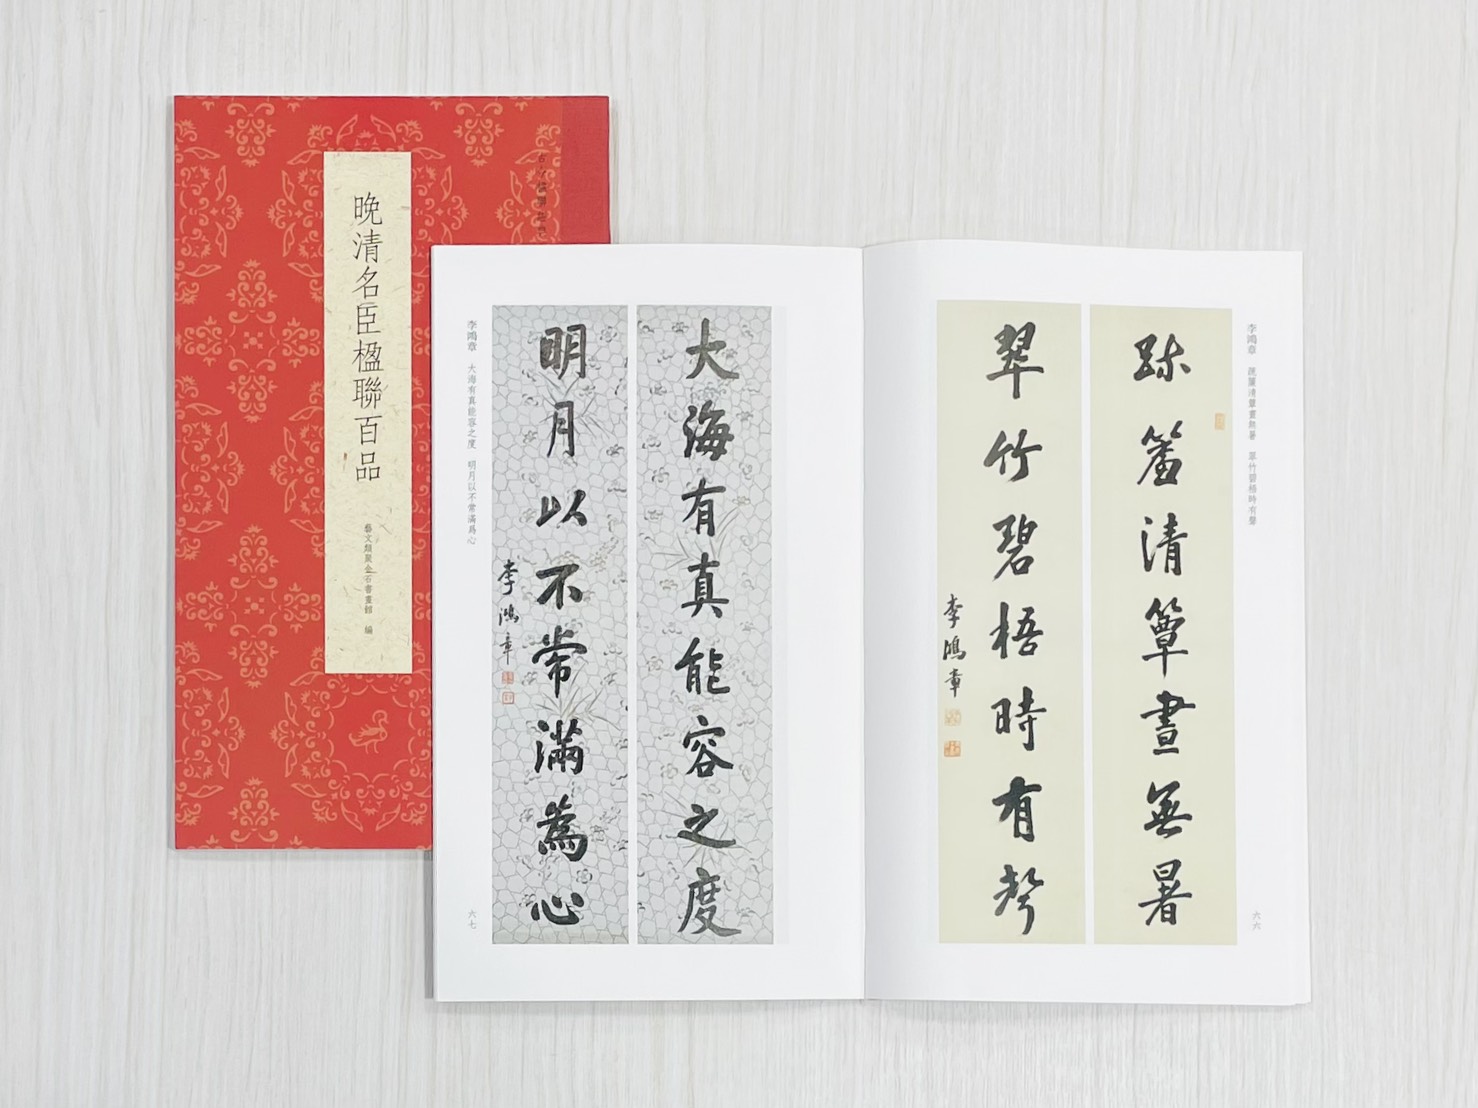 晚清名臣楹聯百品
藝文類聚金石書畫館 編
李鴻章 疏簾清簟晝無暑 翠竹碧梧時有聲
疎簾清簟晝無暑
翠竹碧梧時有聲
李鴻章
六六
大海有真能容之度
明月以不常滿為心
李鴻章
李鴻章 大海有真能容之度 明月以不常滿爲心
六七